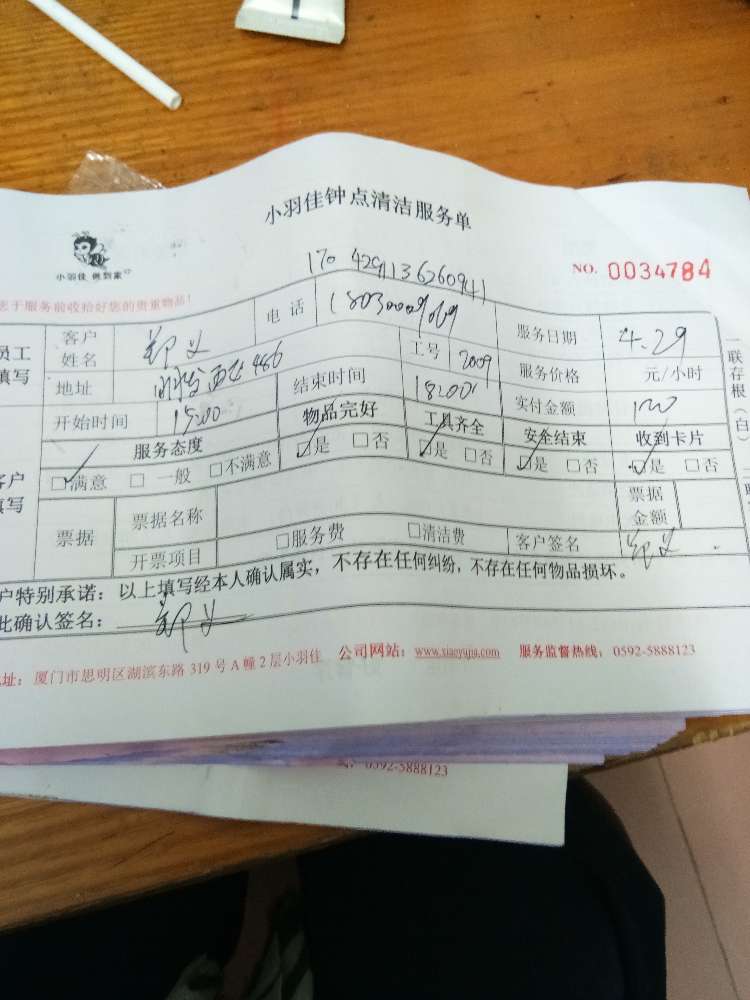 小羽佳钟点清洁服务单
小羽佳 做到家
170 429136260941
NO. 0034784
您于服务前收拾好您的贵重物品!
员工填写 客户姓名 郑义 电话 服务日期 4.29
地址 466 工号 2009 服务价格 元/小时
开始时间 15:00 结束时间 18:00 实付金额
客户填写 服务态度 物品完好 工具齐全 安全结束 收到卡片
☑满意 □一般 □不满意 ☑是 □否 ☑是 □否 ☑是 □否 ☑是 □否
票据 票据名称 票据金额
开票项目 □服务费 □清洁费 客户签名 郑义
户特别承诺:以上填写经本人确认属实,不存在任何纠纷,不存在任何物品损坏。
此确认签名: 郑义
址:厦门市思明区湖滨东路 319 号 A 幢 2 层小羽佳 公司网站:www.xiaoyujia.com 服务监督热线:0592-5888123
一联存根(白)
0592-5888123